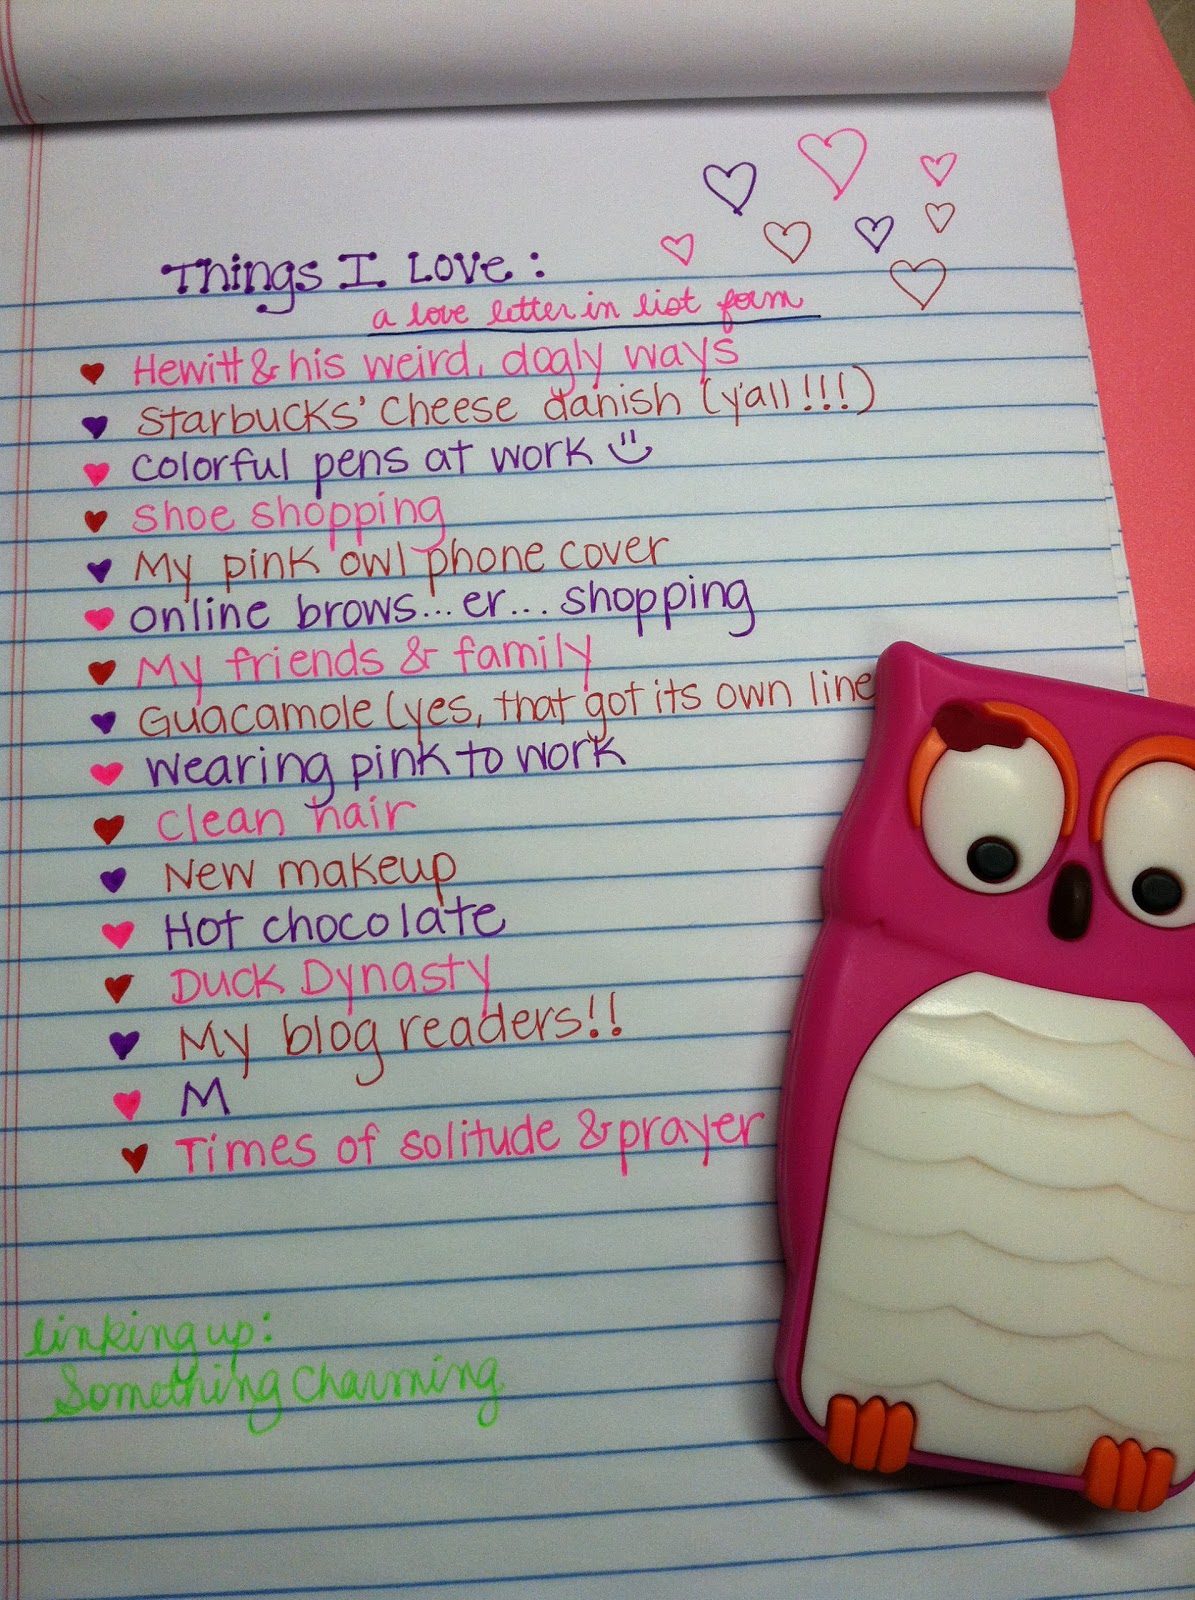 Things I Love:
a love letter in list form
Hewitt & his weird, dogly ways
Starbucks' cheese danish (y'all!!!)
colorful pens at work
shoe shopping
My pink owl phone cover
online brows...er...shopping
My friends & family
Guacamole (yes, that got its own line
wearing pink to work
clean hair
New makeup
Hot chocolate
Duck Dynasty
My blog readers!!
M
Times of solitude & prayer
linking up:
Something Charming